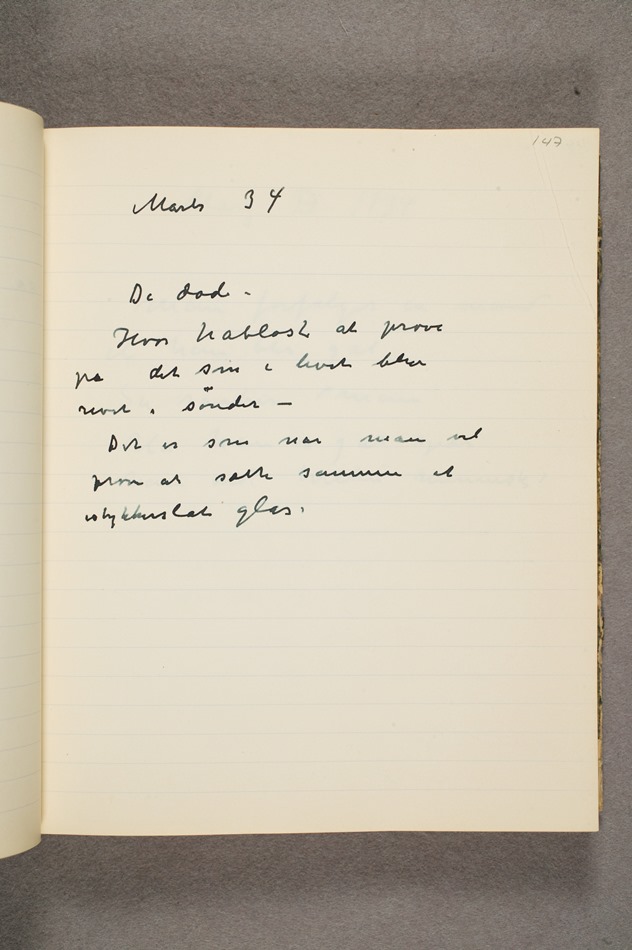 147
Marts 34
De död -
Hvor håblöst at pröve
på det som i livet blev
revet i sönder —
Det er som når man vil
pröve at sætte sammen et
istykkerslået glas.